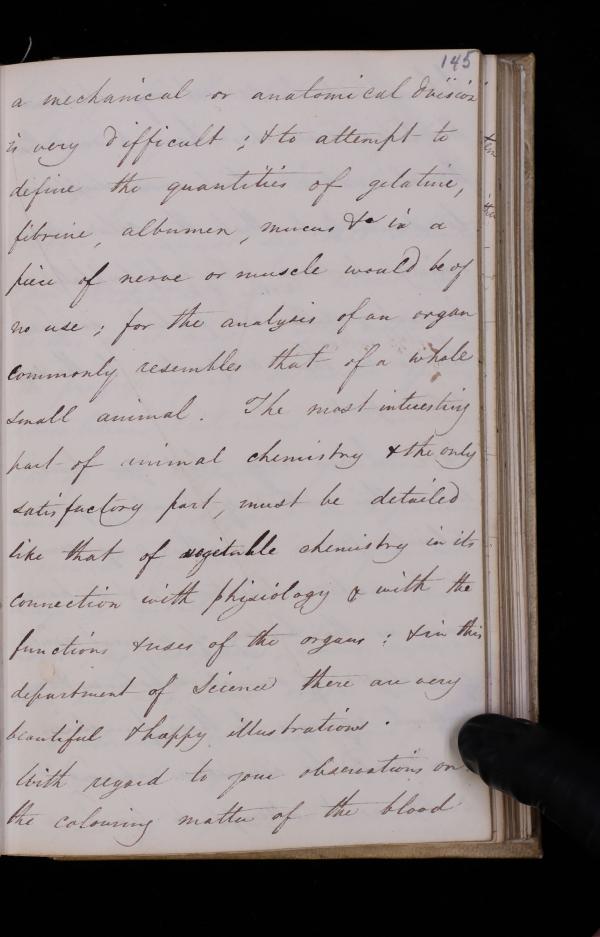 145
a mechanical or anatomical division
is very difficult ; & to attempt to
define the quantities of gelatine,
fibrine, albumen, mucus &c in a
piece of nerve or muscle would be of
no use ; for the analysis of an organ
commonly resembles that of a whole
small animal. The most interesting
part of animal chemistry & the only
satisfactory part, must be detailed
like that of vegetable chemistry in its
connection with physiology & with the
functions & uses of the organs : & in this
department of Science there are very
beautiful & happy illustrations.
With regard to your observations on
the colouring matter of the blood